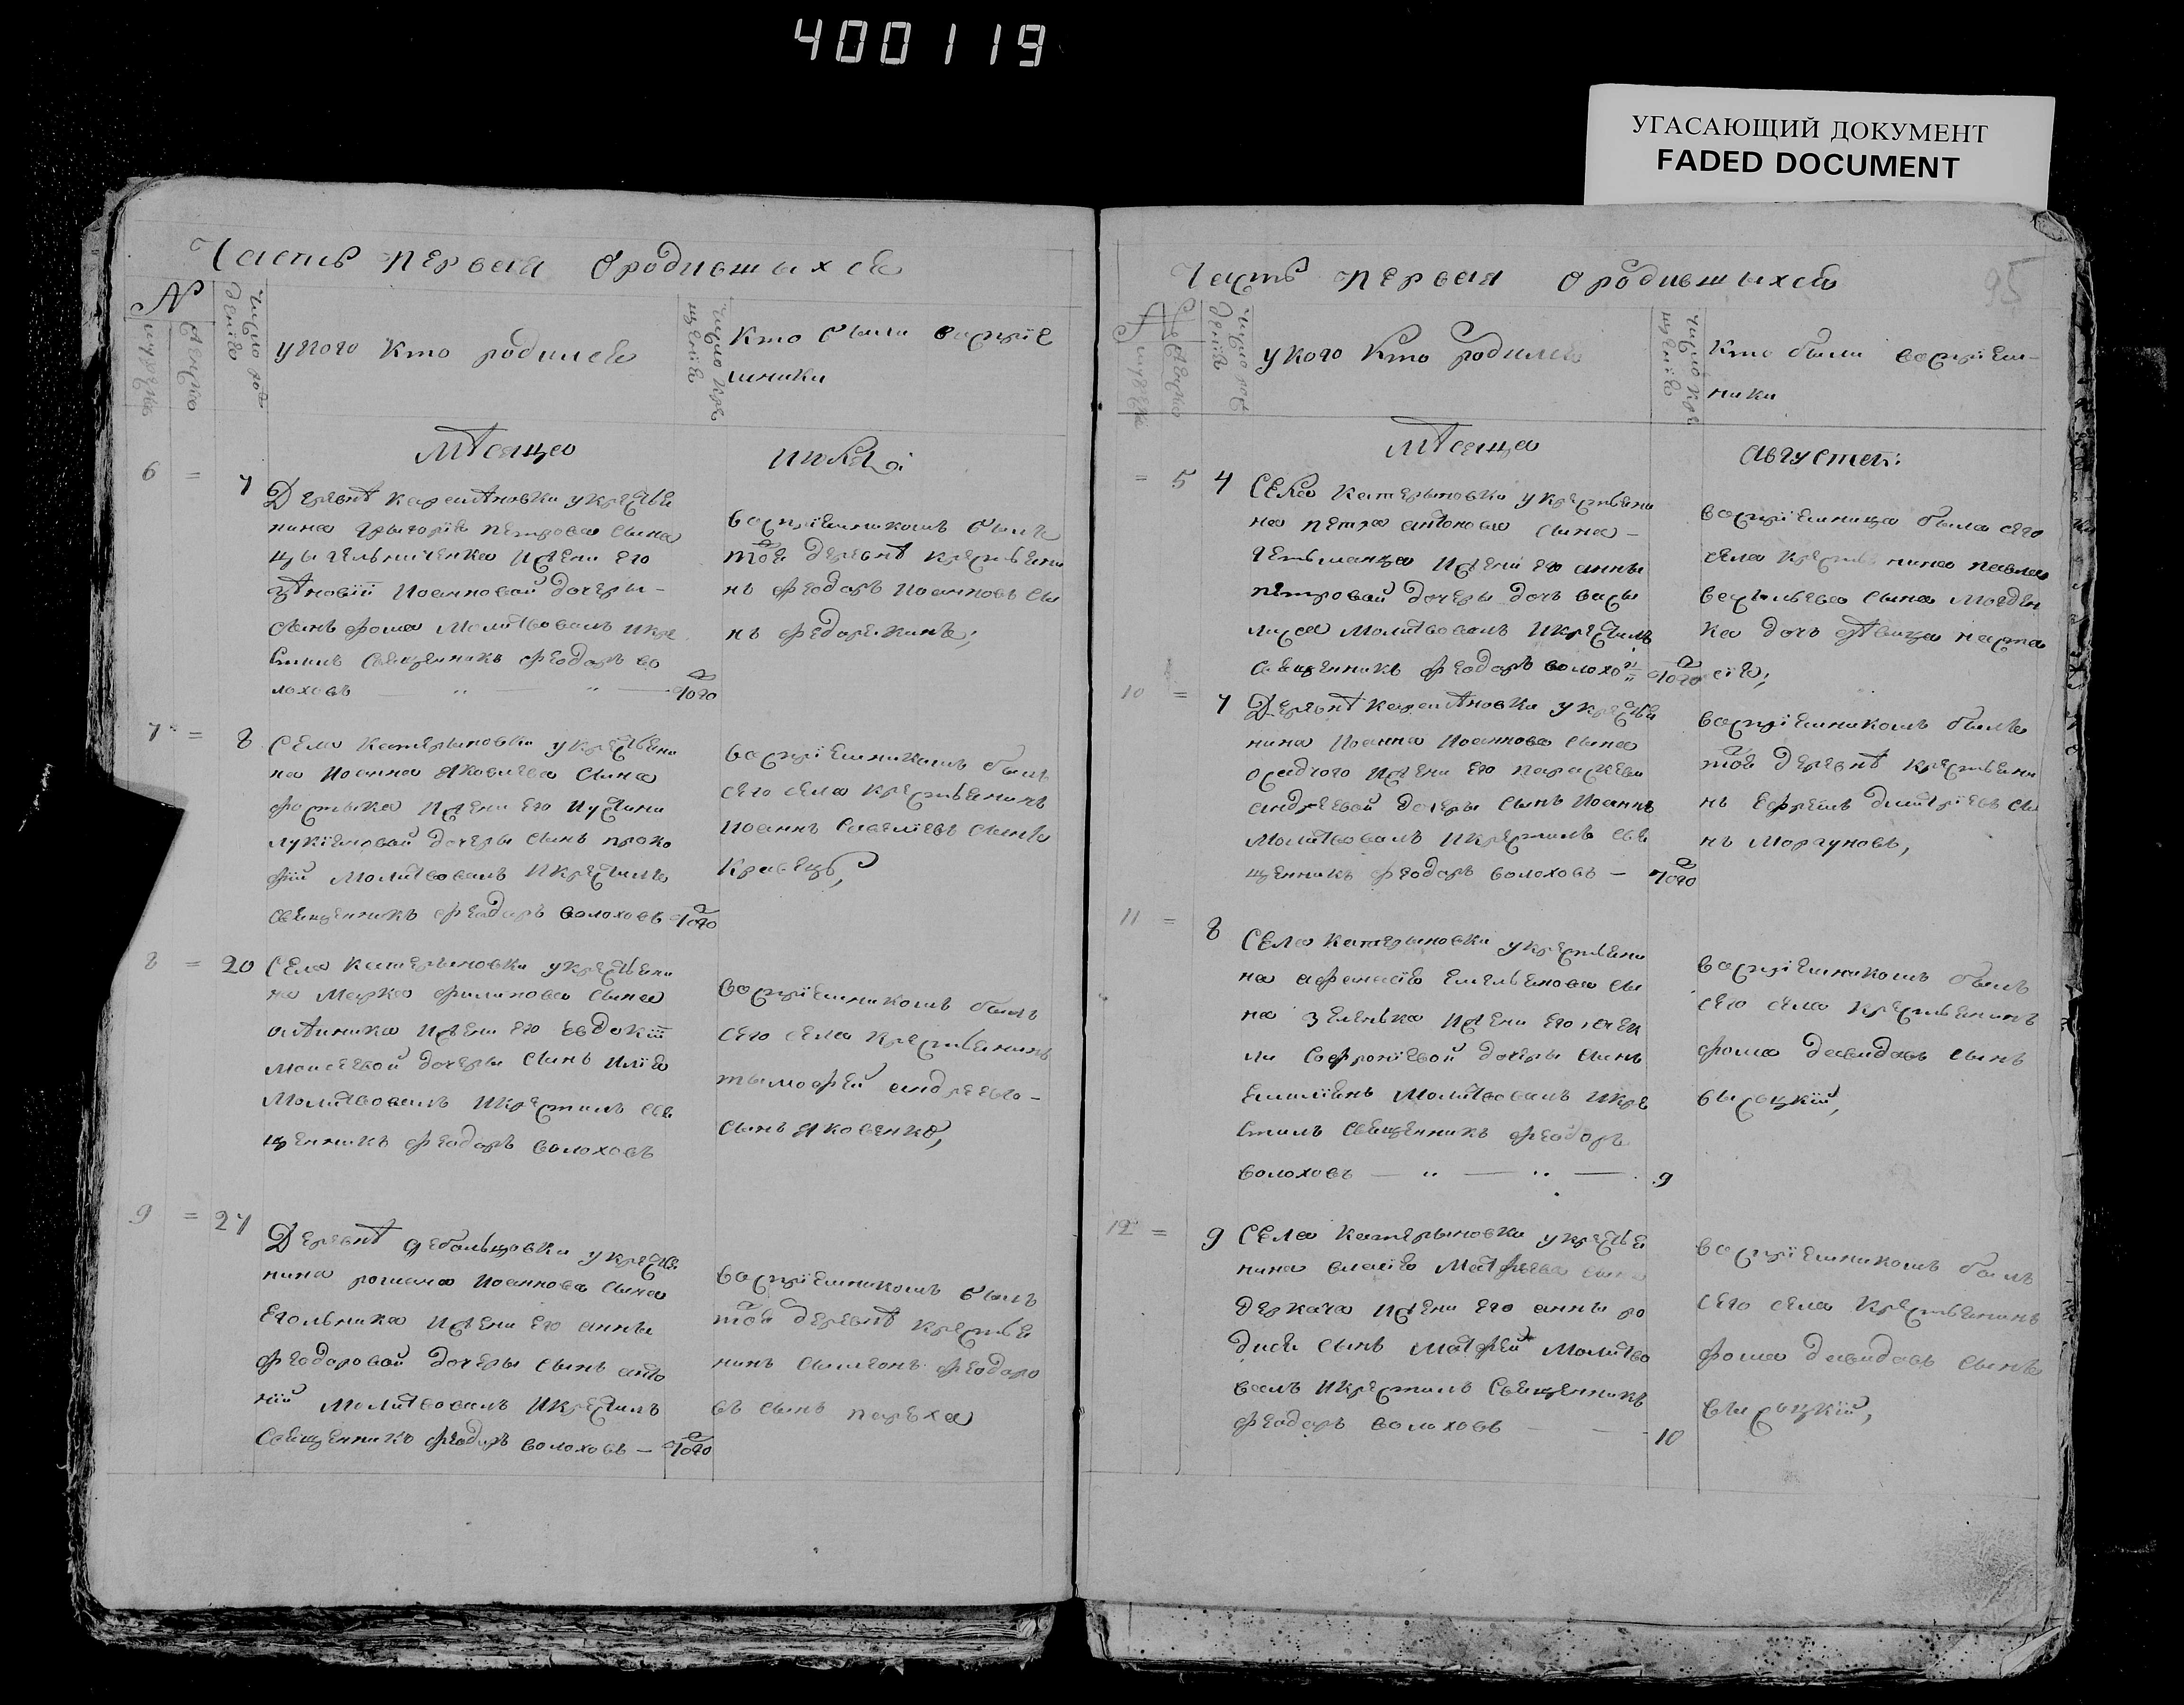 400119
УГАСАЮЩИЙ ДОКУМЕНТ
FADED DOCUMENT
Часть первая о родившыхся
№
мужеска
женска
число рож
денія
у кого кто родился
число кре
щенія
кто были воспріе
мники
мѣсяца
июля
6 = 7
Деревнѣ у крестьян
нина григорія петрова сына
жени его
иоанновой дочеры
сынъ фома молитвовалъ и кре
стилъ священникъ феодоръ во
лоховъ того
воспріемникомъ былъ
той деревнѣ крестьяни
нъ феодоръ иоанновъ сы
нъ
7 = 8
села катерыновки у крестьяни
на иоанна яковлева сына
жени его иустини
дочеры сынъ проко
фій молитвовалъ и крестилъ
священникъ феодоръ волоховъ того
воспріемникомъ былъ
сего села крестьянинъ
иоаннъ савеліевъ сынъ
кравецъ,
8 = 20
села катерыновки у крестьяни
на марка филипова сына
жени его евдокіи
моисеевой дочеры сынъ илія
молитвовалъ и крестилъ свя
щенникъ феодоръ волоховъ
воспріемникомъ былъ
сего села крестьянинъ
тымофей андреевъ
сынъ яковенко,
9 = 27
Деревнѣ дебальцовки у крестья
нина романа иоаннова сына
жени его анны
феодоровой дочеры сынъ анто
ній молитвовалъ и крестилъ
священникъ феодоръ волоховъ — того
воспріемникомъ былъ
той деревнѣ крестьяни
нинъ сымеонъ феодоро
въ сынъ
95
Часть первая о родившыхся
мужеска
женска
число рож
денія
у кого кто родился
число кре
щенія
кто были воспріем
ники
мѣсяца
августа:
= 5 4
села катерыновки у крестьяни
на петра антонова сына
гетьманца жени его анны
петровой дочеры дочь васы
лиса молитвовалъ и крестилъ
священникъ феодоръ волохо того
воспріемница была сего
села крестьянина павла
васыльева сына
ка дочь дѣвица наста
сія;
10 = 7
Деревнѣ у крестья
нина иоанна иоаннова сына
осадчого жени его параскевы
андреевой дочеры сынъ иоаннъ
молитвовалъ и крестилъ свя
щенникъ феодоръ волоховъ — того
воспріемникомъ былъ
той деревнѣ крестьяни
нъ ефремъ дмитріевъ сы
нъ моргуновъ,
11 = 8
села катерыновки у крестьяни
на афанасія емельянова сы
на зеленька жени его
софроніевой дочеры сынъ
емиліянъ молитвовалъ и кре
стилъ священникъ феодоръ
волоховъ 9
воспріемникомъ былъ
сего села крестьянинъ
фома давидовъ сынъ
высоцкій,
12 = 9
села катерыновки у крестья
нина власія матфеева сына
деркача жени его анны ро
дися сынъ матфей молитво
валъ и крестилъ священникъ
феодоръ волоховъ 10
воспріемникомъ былъ
сего села крестьянинъ
фома давидовъ сынъ
высоцкій,